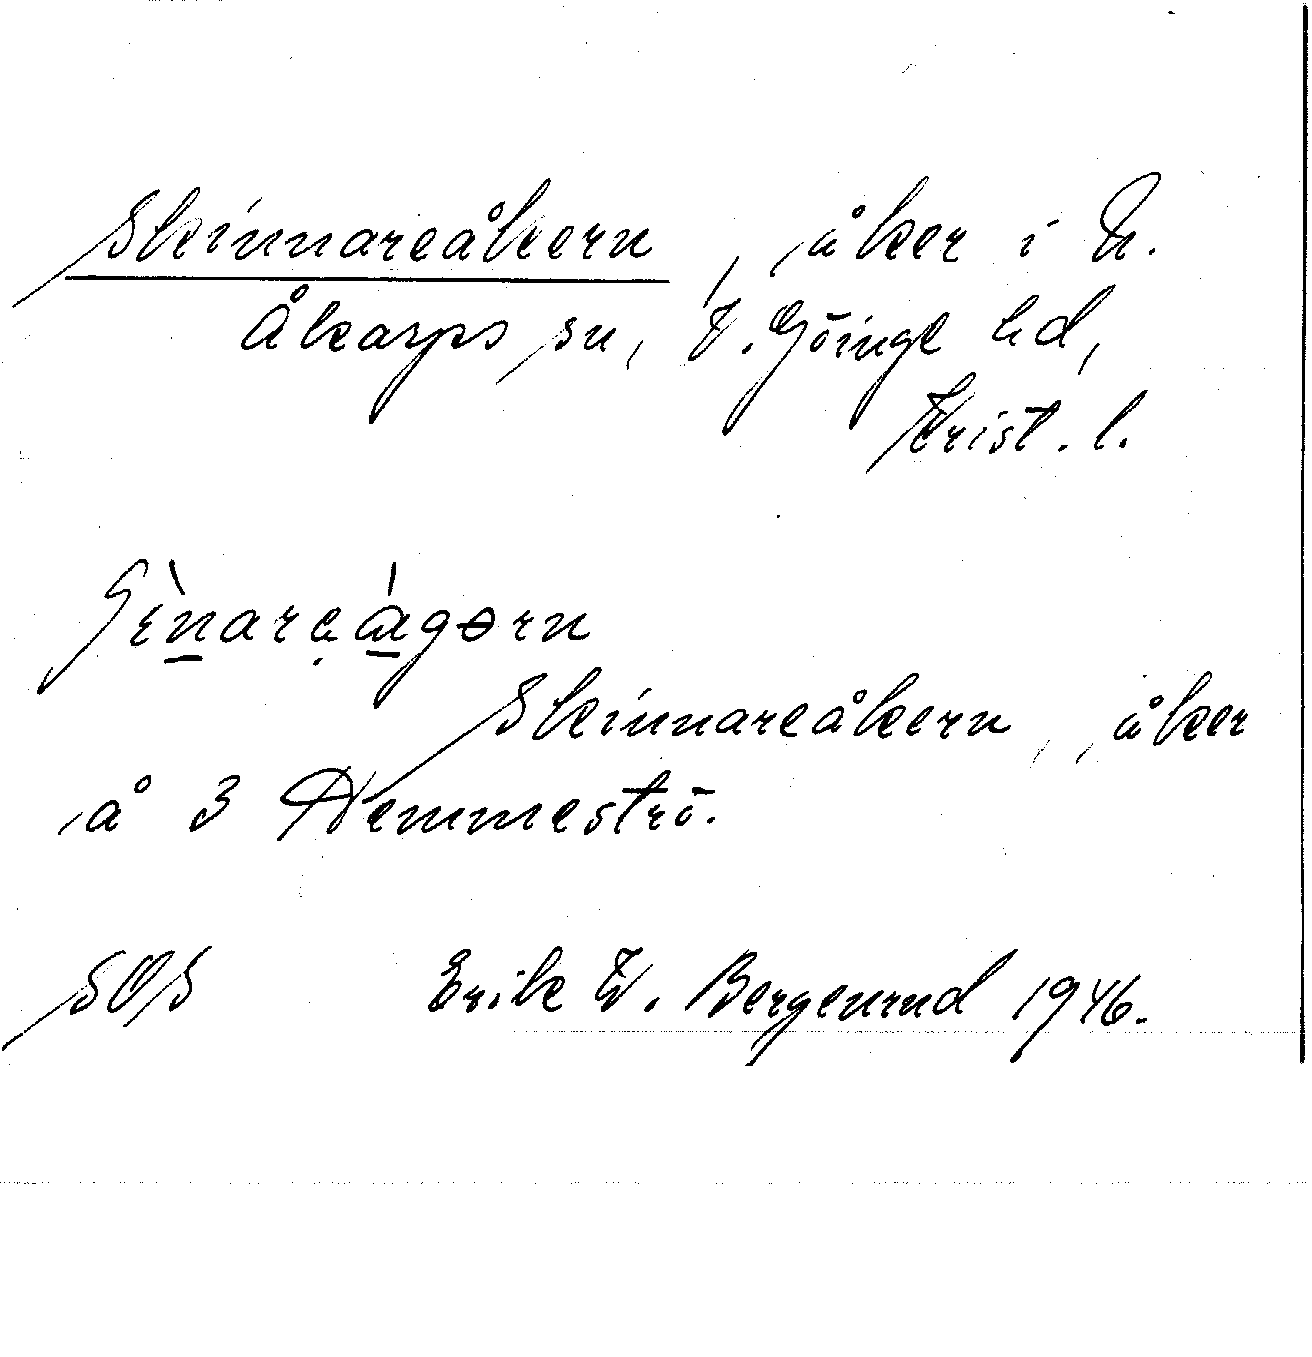 Skinnareåkern, åker i N.
Åkarps sn, V. Göinge hd,
Krist. l.
Skinnareåkern, åker
å 3 Hemmeströ.
SOS Erik W. Bergenrud 1946.